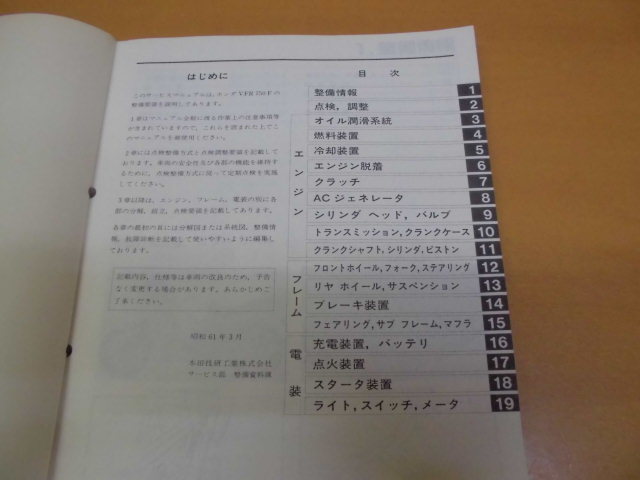 はじめに
このサービスマニュアルは、ホンダ VFR 750 F の
整備要領を説明してあります。
1章はマニュアル全般に渡る作業上の注意事項等
が書かれていますので、これらを読まれた上でこ
のマニュアルを御使用ください。
2章には点検整備方式と点検調整要領を記載して
あります。車両の安全性及び各部の機能を維持す
るために、点検整備方式に従って定期点検を実施
してください。
3章以降は、エンジン、フレーム、電装の順に各
部の分解、組立、点検要領を記載してあります。
各章の最初の頁には分解図または系統図、整備情
報、故障診断を記載して使いやすいように編集し
ております。
記載内容、仕様等は車両の改良のため、予告
なく変更する場合があります。あらかじめご
了承ください。
昭和 61 年 3 月
本田技研工業株式会社
サービス部 整備資料課
目 次
整備情報 1
点検, 調整 2
エンジン
オイル潤滑系統 3
燃料装置 4
冷却装置 5
エンジン脱着 6
クラッチ 7
ACジェネレータ 8
シリンダ ヘッド, バルブ 9
トランスミッション, クランクケース 10
クランクシャフト, シリンダ, ピストン 11
フレーム
フロントホイール, フォーク, ステアリング 12
リヤ ホイール, サスペンション 13
ブレーキ装置 14
フェアリング, サブ フレーム, マフラ 15
電装
充電装置, バッテリ 16
点火装置 17
スタータ装置 18
ライト, スイッチ, メータ 19